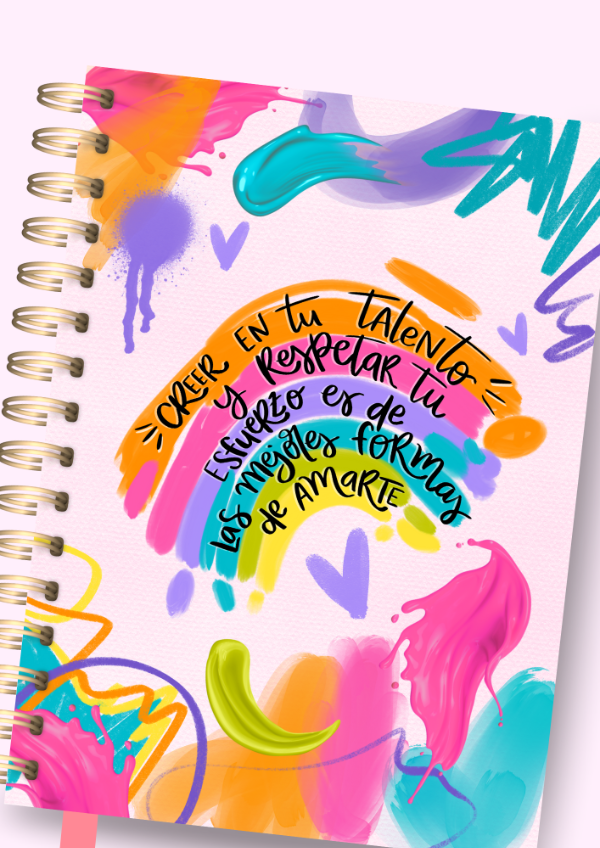 CREER EN tu TALENTO
y RESPETAR tu
ESFUERZO es de
las mejores FORMAS
de AMARTE